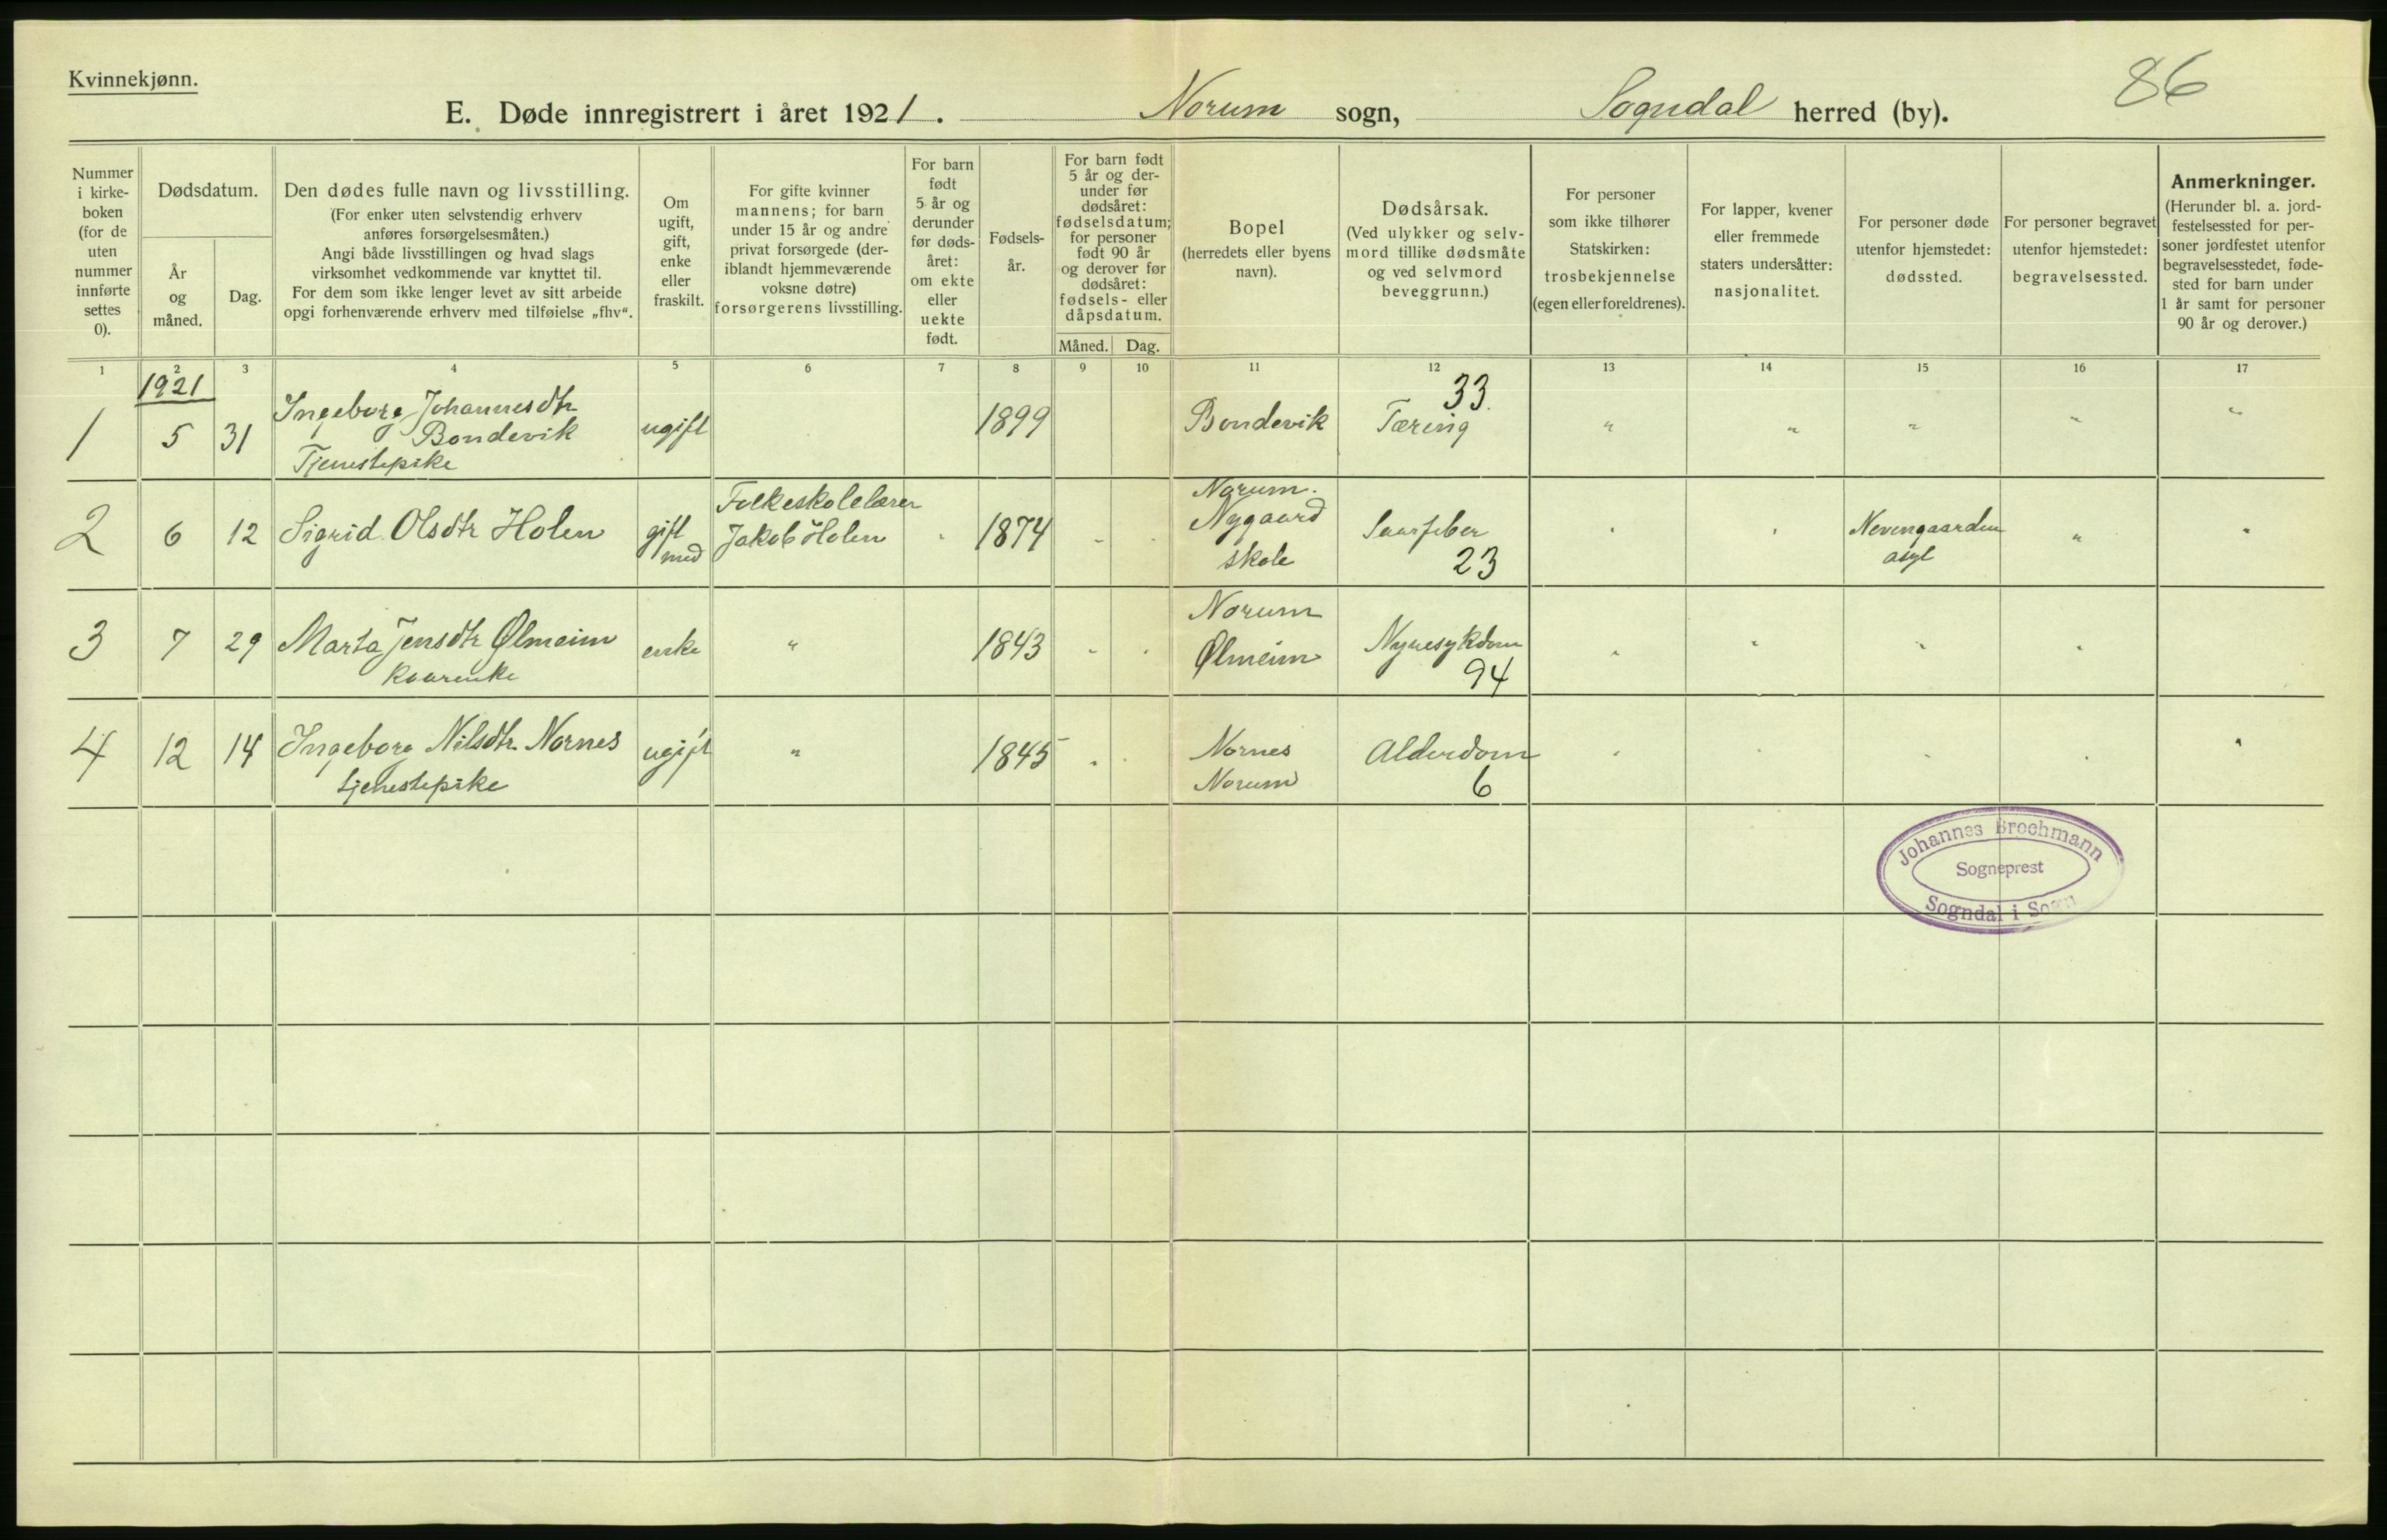 Kvinnekjønn.
86
E. Døde innregistrert i året 1921. Norum sogn, Sogndal herred (by).
Nummer
i kirke-
boken
(for de
uten
nummer
innførte
settes
0).
Dødsdatum.
År
og
måned.
Dag.
Den dødes fulle navn og livsstilling.
(For enker uten selvstendig erhverv
anføres forsørgelsesmåten.)
Angi både livsstillingen og hvad slags
virksomhet vedkommende var knyttet til.
For dem som ikke lenger levet av sitt arbeide
opgi forhenværende erhverv med tilføielse „fhv“.
Om
ugift,
gift,
enke
eller
fraskilt.
For gifte kvinner
mannens; for barn
under 15 år og andre
privat forsørgede (der-
iblandt hjemmeværende
voksne døtre)
forsørgerens livsstilling.
For barn
født
5 år og
derunder
før døds-
året:
om ekte
eller
uekte
født.
Fødsels-
år.
For barn født
5 år og der-
under før
dødsåret:
fødselsdatum;
for personer
født 90 år
og derover før
dødsåret:
fødsels- eller
dåpsdatum.
Måned. Dag.
Bopel
(herredets eller byens
navn).
Dødsårsak.
(Ved ulykker og selv-
mord tillike dødsmåte
og ved selvmord
beveggrunn.)
For personer
som ikke tilhører
Statskirken:
trosbekjennelse
(egen eller foreldrenes).
For lapper, kvener
eller fremmede
staters undersåtter:
nasjonalitet.
For personer døde
utenfor hjemstedet:
dødssted.
For personer begravet
utenfor hjemstedet:
begravelsessted.
Anmerkninger.
(Herunder bl. a. jord-
festelsessted for per-
soner jordfestet utenfor
begravelsesstedet, føde-
sted for barn under
1 år samt for personer
90 år og derover.)
1 2 3 4 5 6 7 8 9 10 11 12 13 14 15 16 17
1921
1 5 31
Ingeborg Johannesdtr
Bondevik
Tjenestepike
ugift
1899
Bondevik
33
Tæring
" " " " "
2 6 12
Sigrid Olsdtr Holen
gift
med
Folkeskolelærer
Jakob Holen
1874
Norum.
Nygaard
skole
Saarfeber
23
Nevengaarden
asyl
"
3 7 29
Marta Jensdtr Ølmeim
Kaarenke
enke
"
1843
Norum
Ølmeim
Nyresykdom
94
4 12 14
Ingeborg Nilsdtr. Nornes
tjenestepike
ugift
"
1845
Nornes
Norum
Alderdom
6
Johannes Brochmann
Sogneprest
Sogndal i Sogn